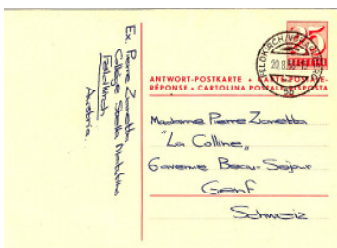 Ex Pierre Zanetta
Collège Stella Matutina
Feldkirch
Austria.
25
FELDKIRCH
20.8.
ANTWORT-POSTKARTE + CARTE POSTALE-
RÉPONSE + CARTOLINA POSTALE RISPOSTA
Madame Pierre Zanetta
"La Colline"
6 avenue Beau-Séjour
Genf
Schweiz